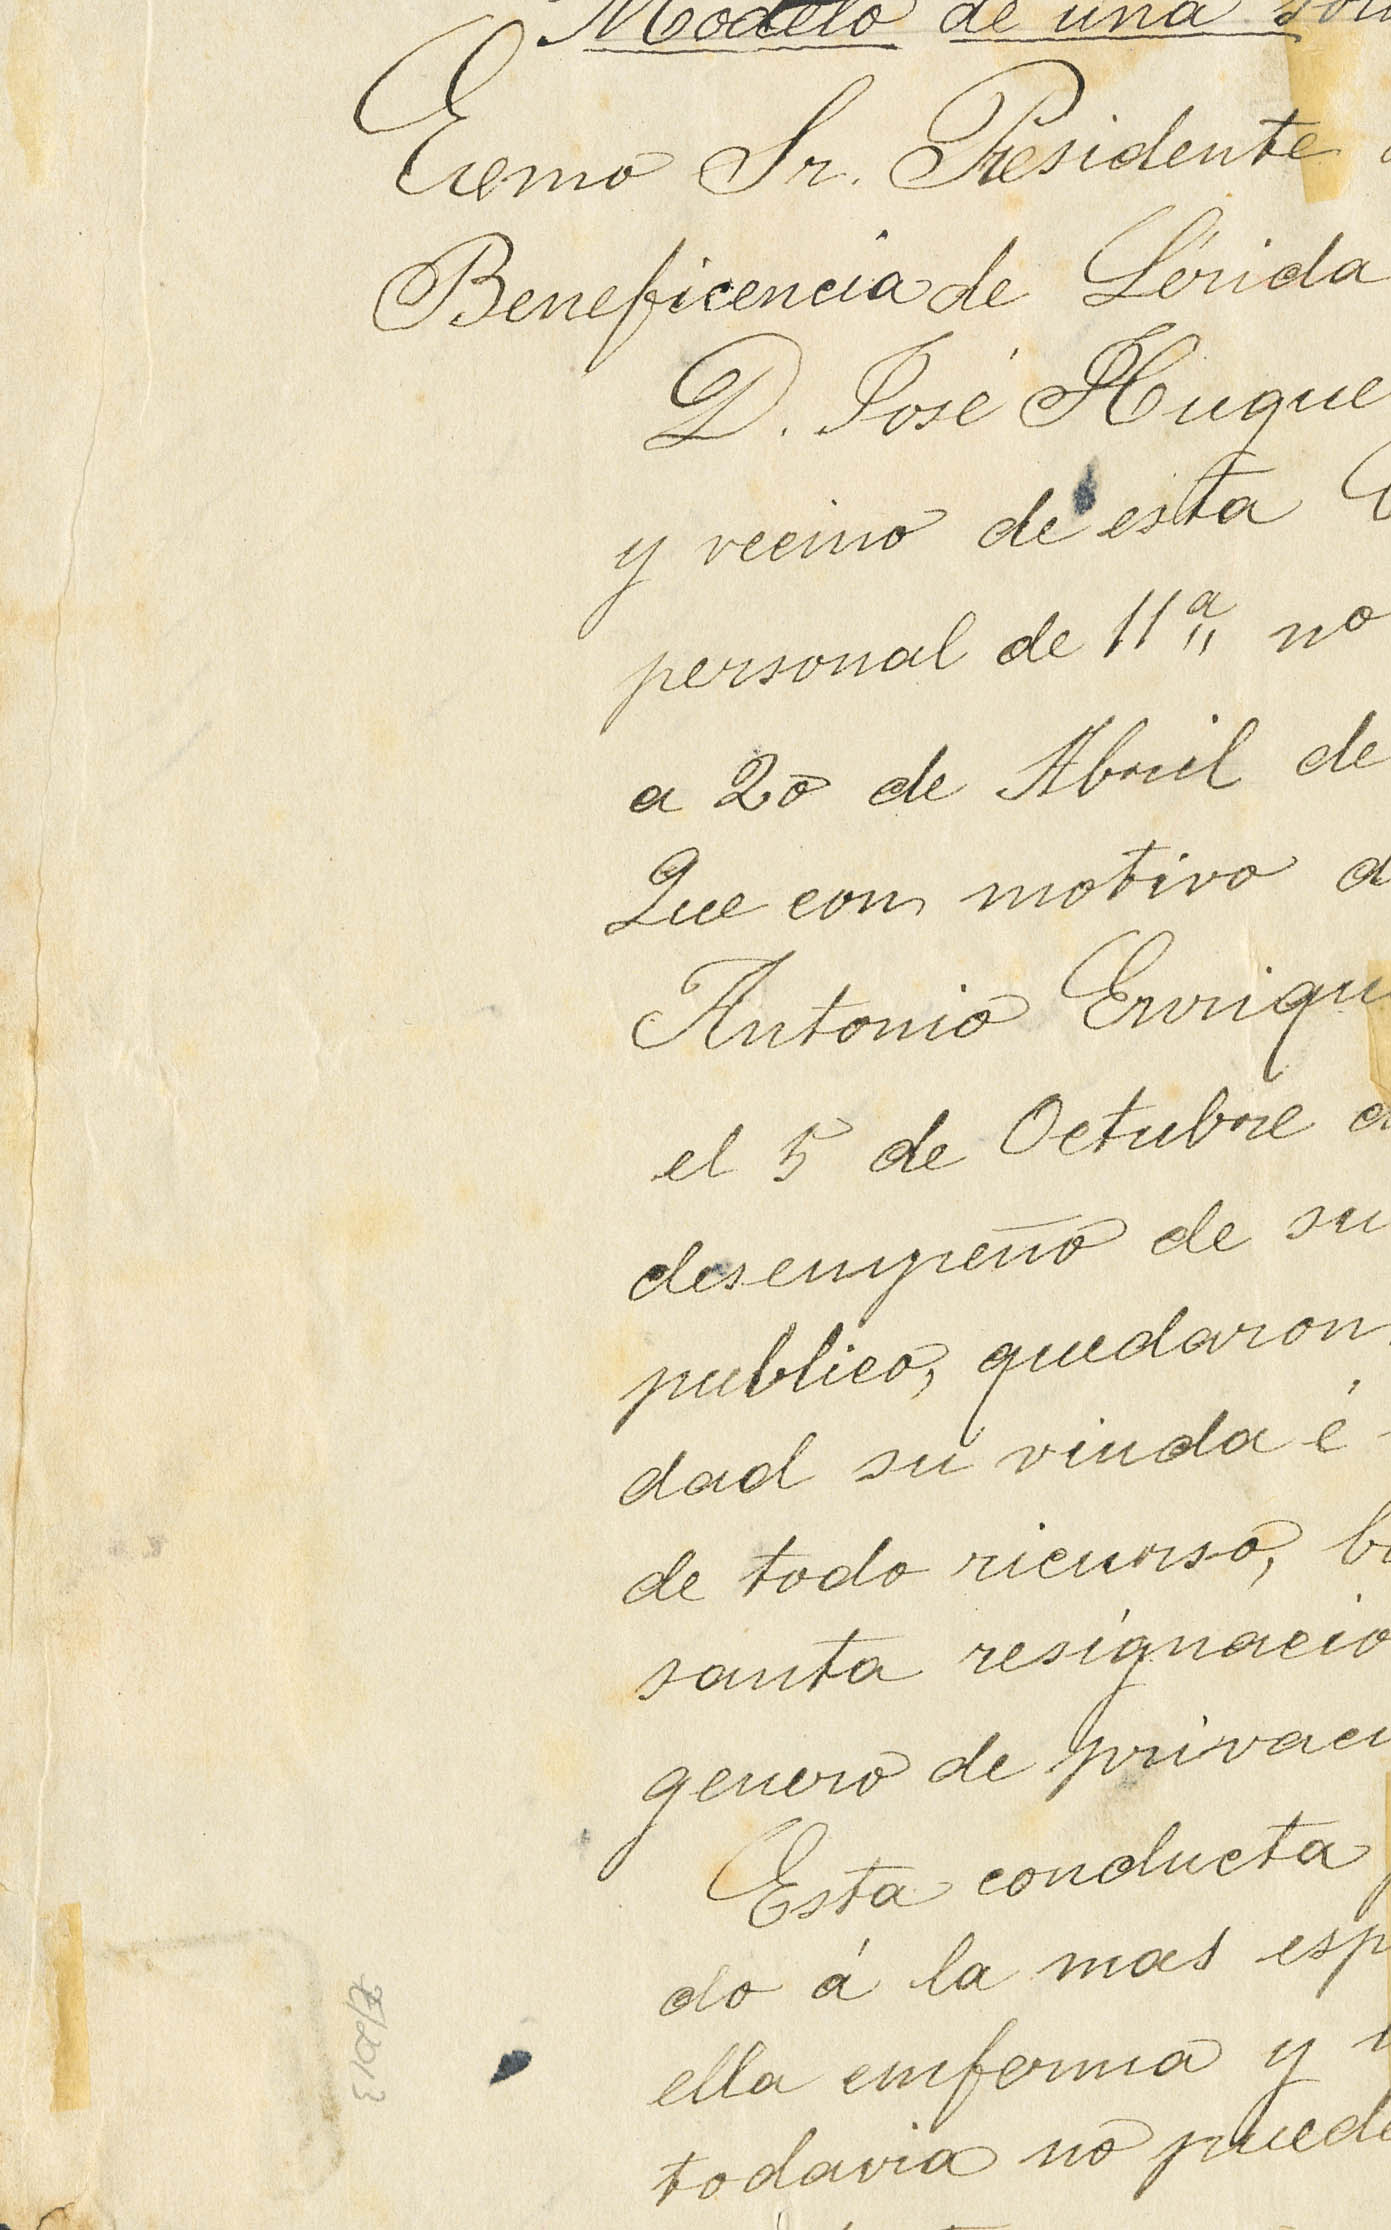 Modelo de una
Exemo Sr. Presidente
Beneficencia de Lérida
D. José Hugue
y vecino de esta
personal de 11ª nº
a 20 de Abril de
Que con motivo d
Antonio Enriqu
el 5 de Octubre
desempeño de su
publico, quedaron
dad su viuda é
de todo ricurso,
santa resignacio
genero de privaci
Esta conducta
do á la mas esp
ella emferma y
todavia no puede